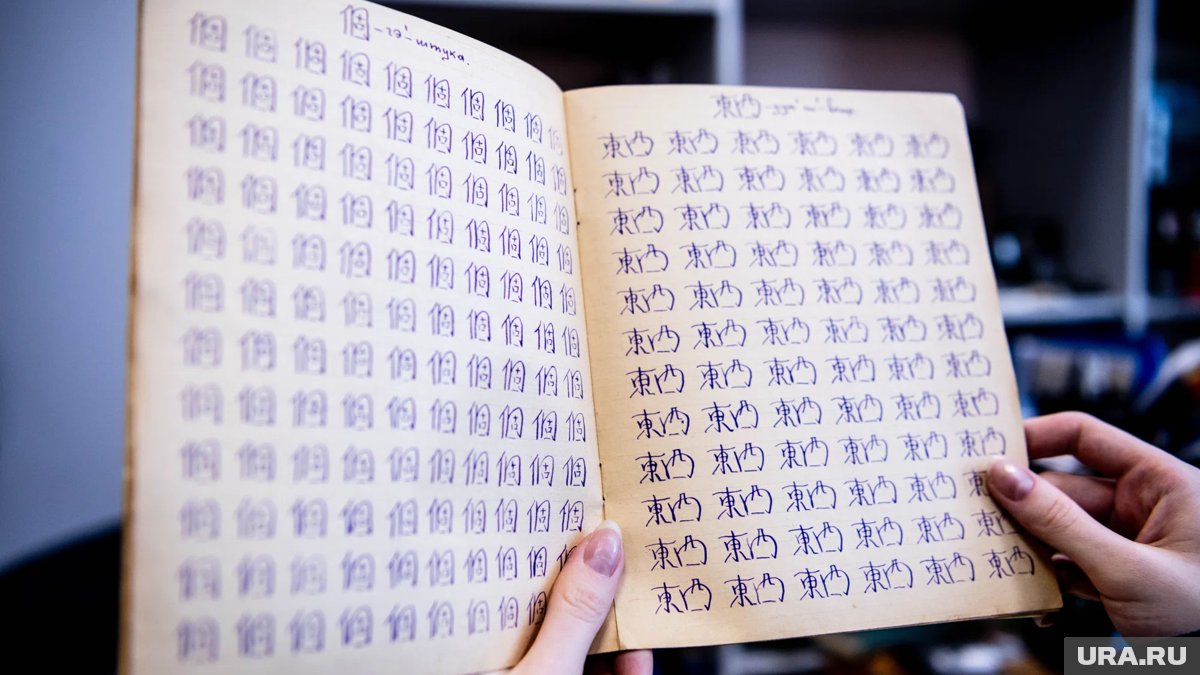 個 – гэ` – штука.
個個個個個個個個個個
個個個個個個個個個個
個個個個個個個個個個
個個個個個個個個個個
個個個個個個個個個個
個個個個個個個個個個
個個個個個個個個個個
個個個個個個個個個個
個個個個個個個個個個
個個個個個個個個個個
個個個個個個個個個
個個個個個個個個個
東西 –
東西 東西 東西 東西 東西 東西
東西 東西 東西 東西 東西 東西
東西 東西 東西 東西 東西 東西
東西 東西 東西 東西 東西 東西
東西 東西 東西 東西 東西 東西
東西 東西 東西 東西 東西 東西
東西 東西 東西 東西 東西 東西
東西 東西 東西 東西 東西 東西
東西 東西 東西 東西 東西 東西
東西 東西 東西 東西 東西
東西 東西 東西 東西 東西 東
東西 東西 東西 東西 東西 東西
URA.RU